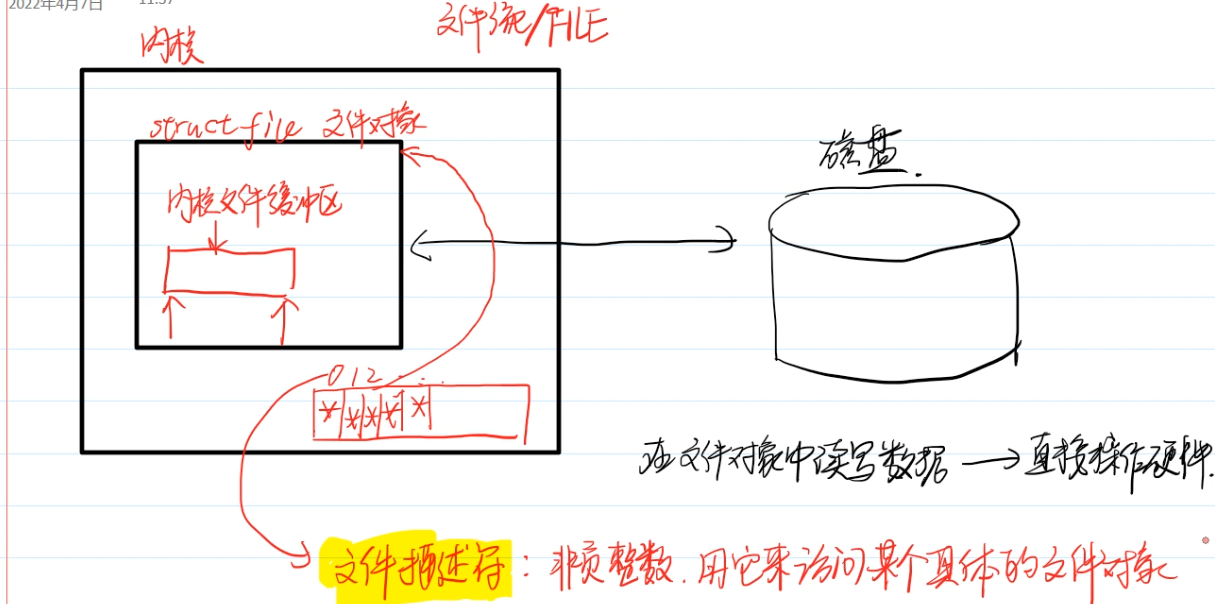 2022年4月7日 11:37
文件流/FILE
内核
struct file 文件对象
磁盘.
内核文件缓冲区
0 1 2 ....
* * * * *
在文件对象中读写数据 → 直接操作硬件.
文件描述符: 非负整数.用它来访问某个具体的文件对象